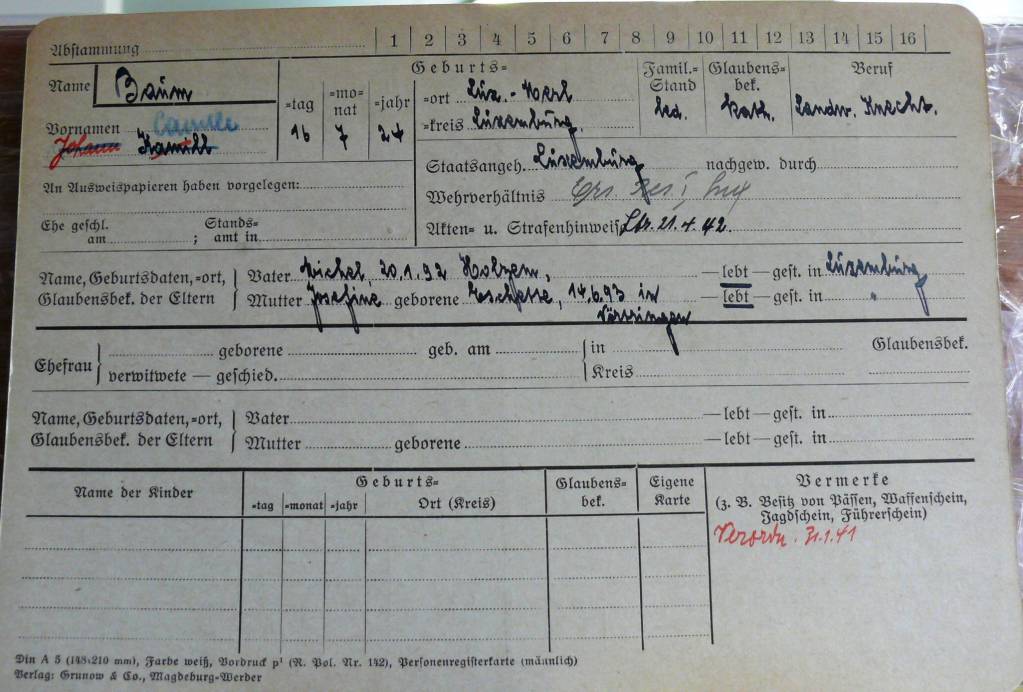 Abstammung 1 2 3 4 5 6 7 8 9 10 11 12 13 14 15 16
Name Baum
Geburts=
Famil.= Stand
Glaubens= bek.
Beruf
=tag =mo= nat =jahr
=ort Lux.-Merl
led. kath. Landw. Knecht.
Vornamen Camille
Johann Kamill
16 7 24
=kreis Luxemburg
Staatsangeh. Luxemburg nachgew. durch
An Ausweispapieren haben vorgelegen:
Wehrverhältnis Ers. Res. I
Ehe geschl. am ; Stands= amt in
Akten= u. Strafenhinweis 21.4.42.
Name, Geburtsdaten, =ort, Glaubensbek. der Eltern
Vater Michel, 20.1.92 Holzem, — lebt — gest. in Luxemburg
Mutter Josefine geborene 14.6.93 in — lebt — gest. in "
Ehefrau
geborene geb. am in Glaubensbek.
verwitwete — geschied. Kreis
Name, Geburtsdaten, =ort, Glaubensbek. der Eltern
Vater — lebt — gest. in
Mutter geborene — lebt — gest. in
Name der Kinder
Geburts=
=tag =monat =jahr Ort (Kreis)
Glaubens= bek.
Eigene Karte
Vermerke
(z. B. Besitz von Pässen, Waffenschein,
Jagdschein, Führerschein)
Verordn. 31.1.41
Din A 5 (148x210 mm), Farbe weiß, Vordruck p¹ (R. Pol. Nr. 142), Personenregisterkarte (männlich)
Verlag: Grunow & Co., Magdeburg-Werder